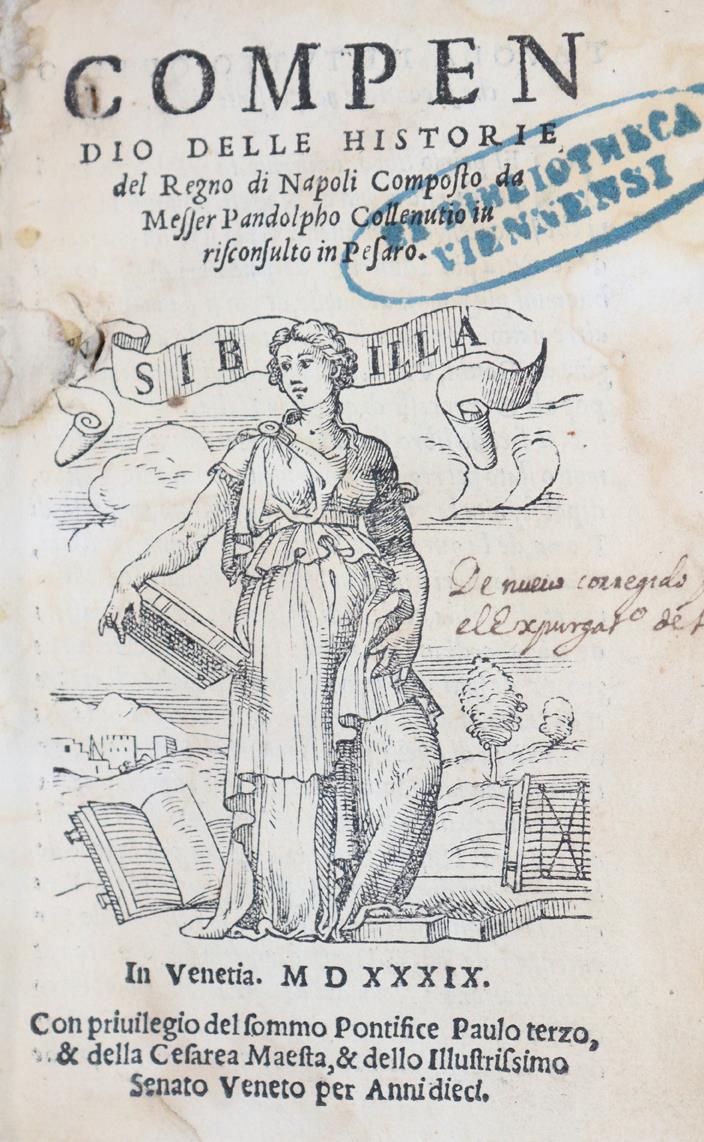 COMPEN
DIO DELLE HISTORIE
del Regno di Napoli Compoſto da
Meſſer Pandolpho Collenutio iu
riſconſulto in Peſaro.
BIBLIOTHECA
VIENNENSI
SIB ILLA
De nuevo corregido
el Expurgatº de
In Venetia. M D XXXIX.
Con priuilegio del ſommo Pontifice Paulo terzo,
& della Ceſarea Maeſta, & dello Illuſtriſsimo
Senato Veneto per Anni dieci.